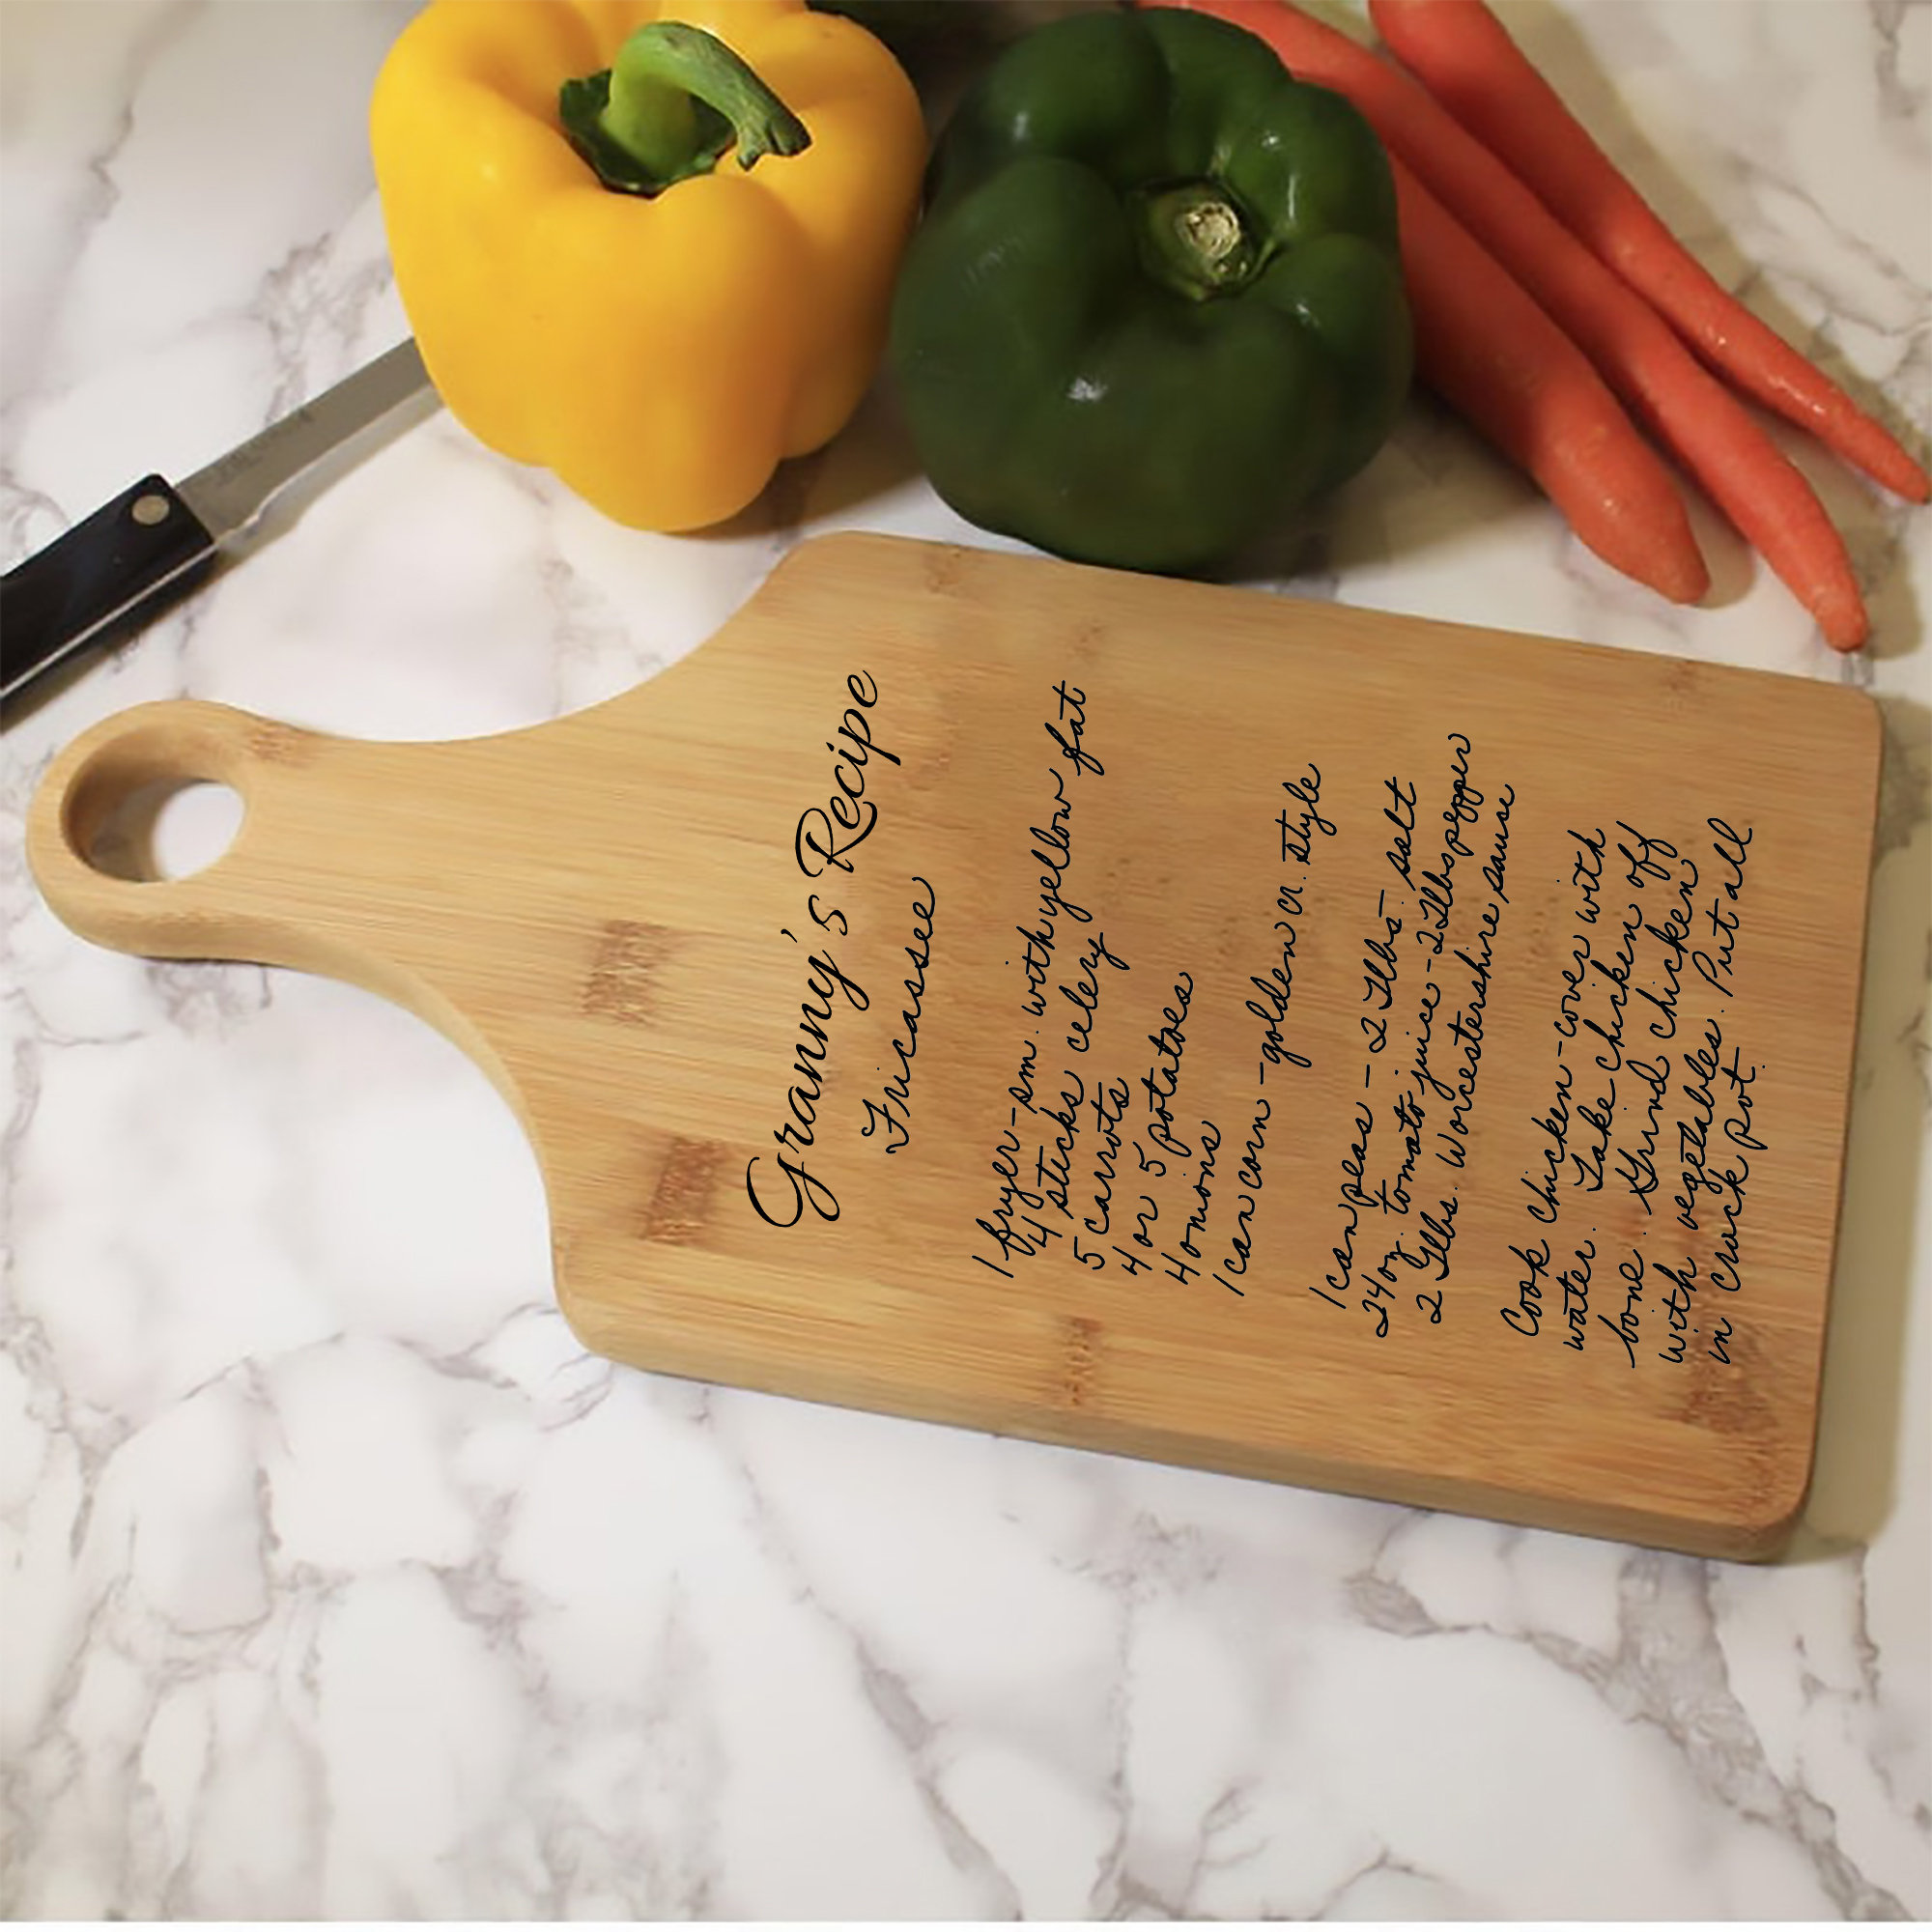 Granny's Recipe
Fricassee
1 fryer - sm. with yellow fat
4 sticks celery
5 carrots
4 or 5 potatoes
4 onions
1 can corn - golden cr. style
1 can peas - 2 Tlbs. salt
24 oz. tomato juice - 2 Tlbs pepper
2 Tlbs. Worcestershire sause
Cook chicken - cover with
water. Take chicken off
bone. Grind chicken
with vegetables. Put all
in crock pot.